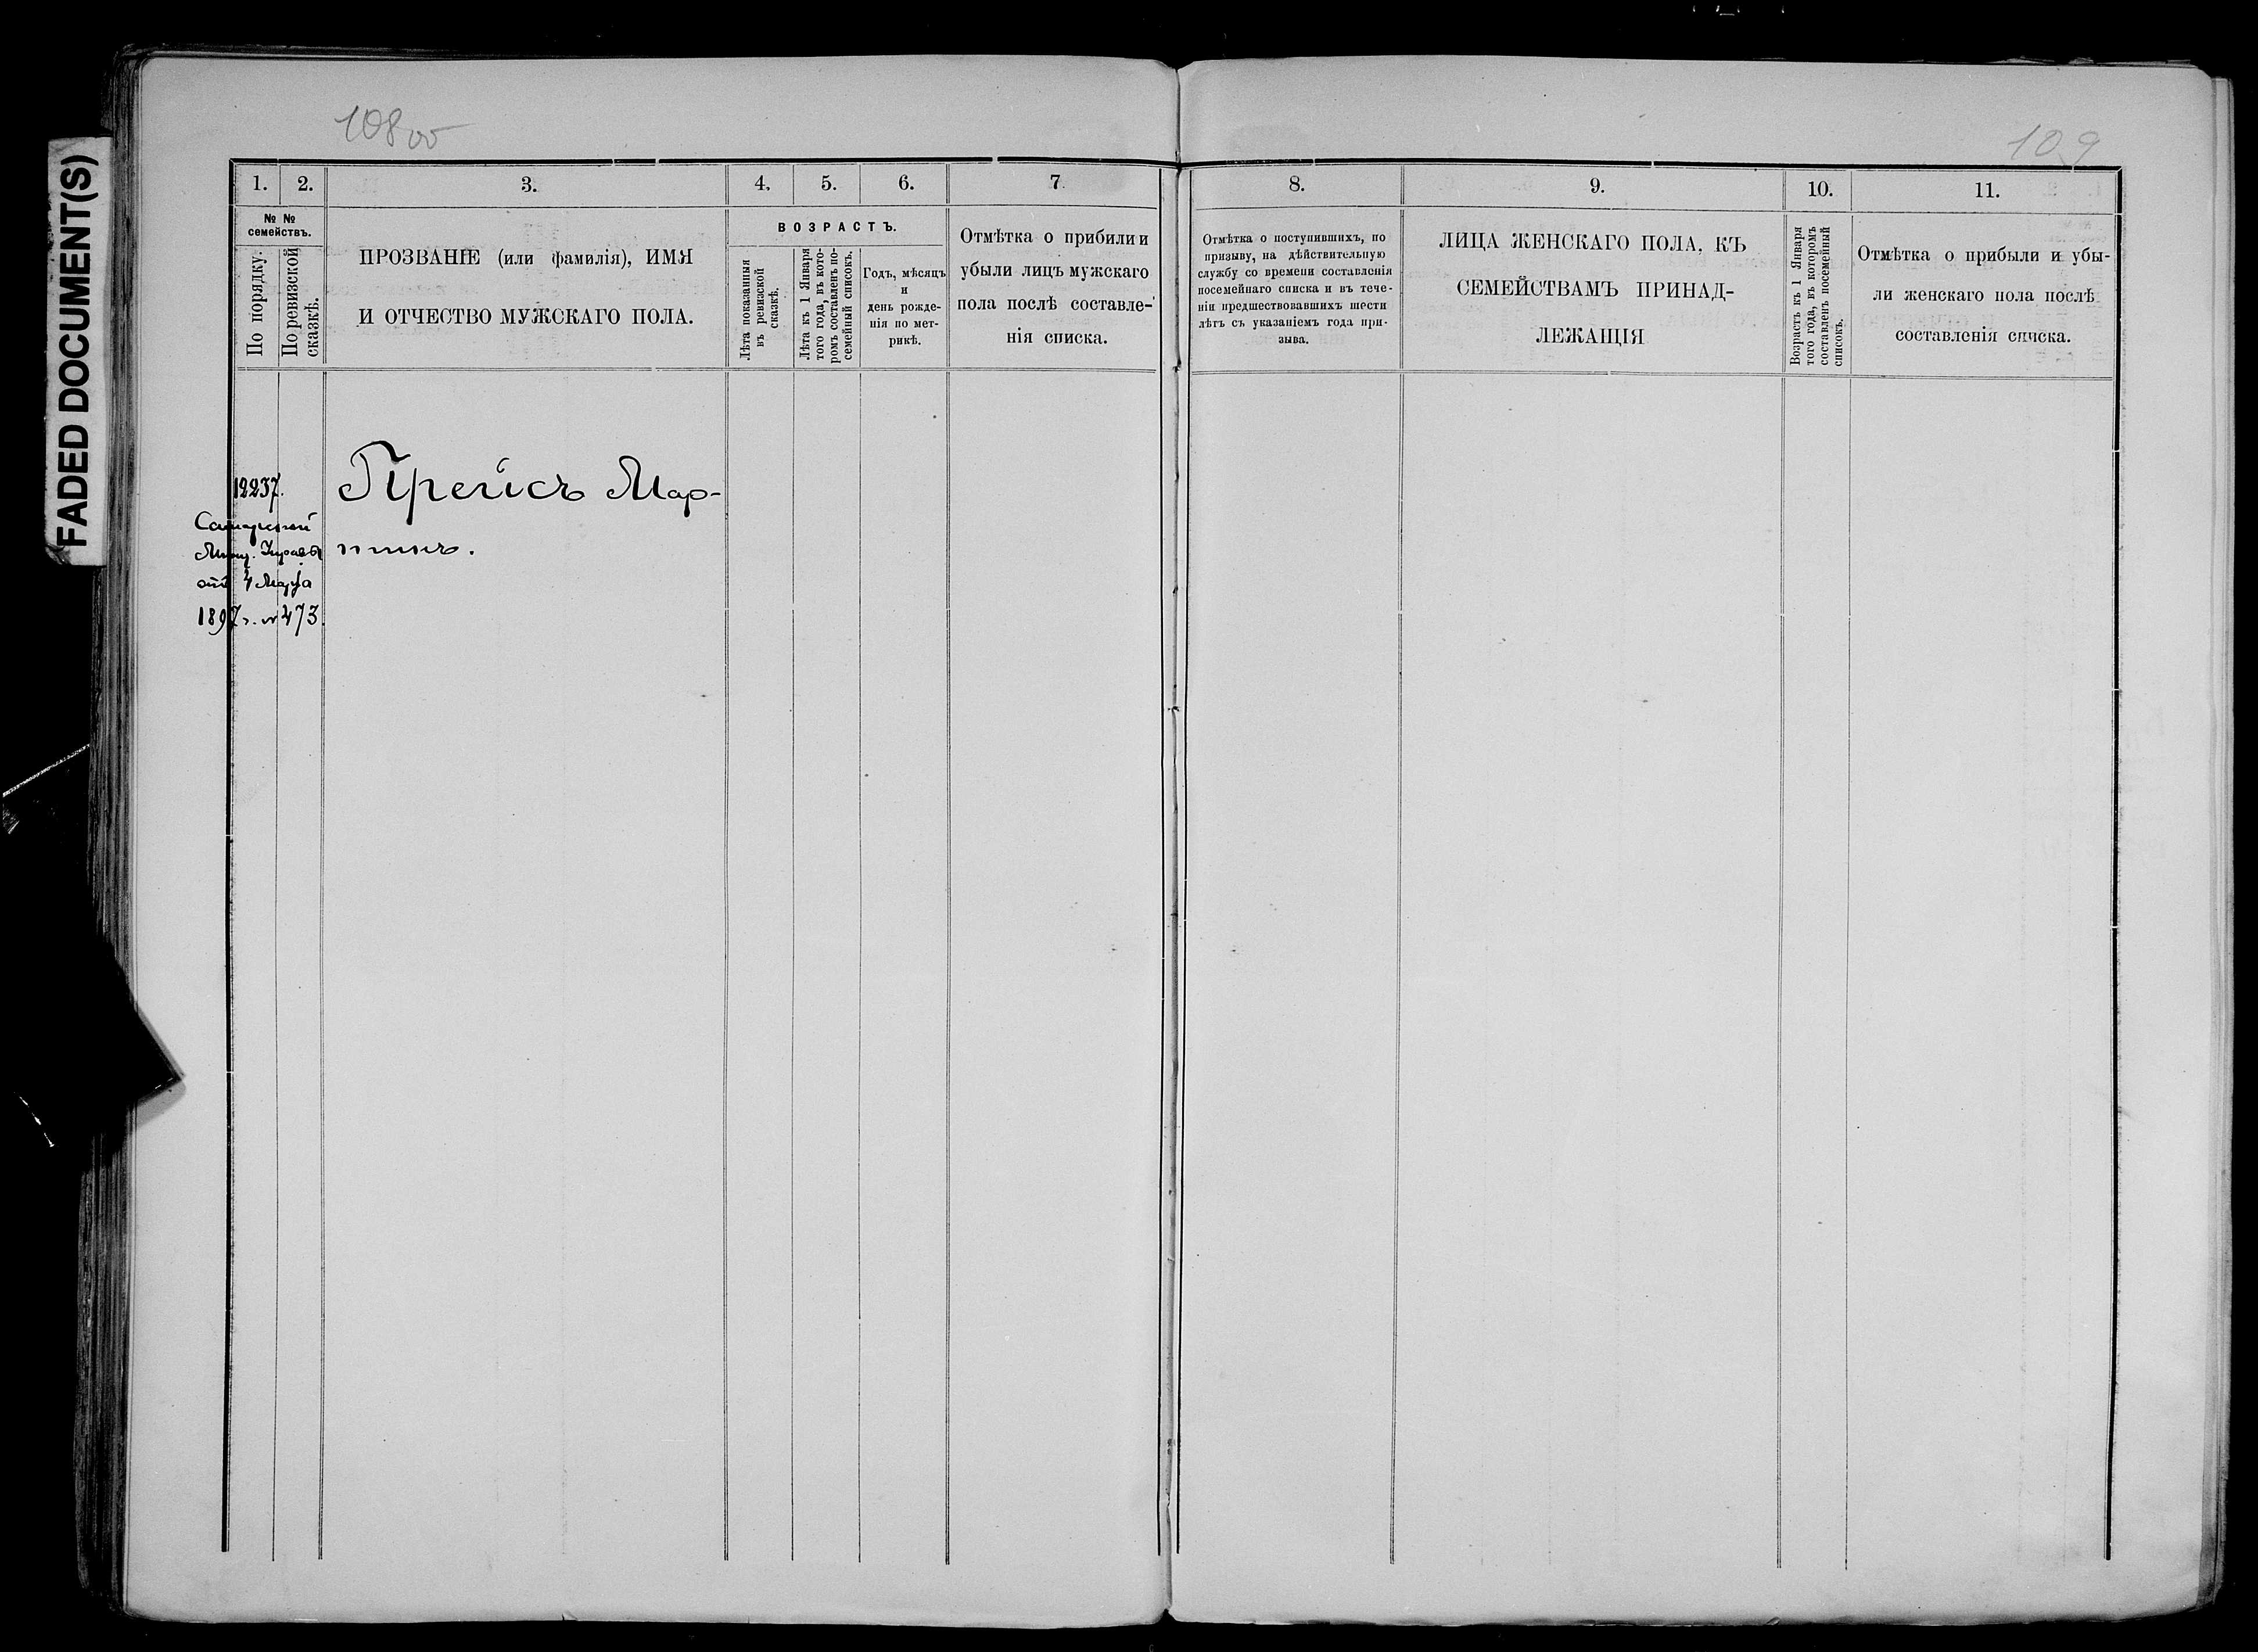 FADED DOCUMENT(S)
108об
109
1.
2.
3.
4.
5.
6.
7.
8.
9.
10.
11.
№ №
семействъ.
По порядку.
По ревизской
сказкѣ.
ПРОЗВАНІЕ (или фамилія), ИМЯ
И ОТЧЕСТВО МУЖСКАГО ПОЛА.
ВОЗРАСТЪ.
Лѣта показанныя
въ ревизской
сказкѣ.
Лѣта къ 1 Января
того года, въ кото-
ромъ составленъ по-
семейный списокъ.
Годъ, мѣсяцъ
и
день рожде-
нія по мет-
рикѣ.
Отмѣтка о прибили и
убыли лицъ мужскаго
пола послѣ составле-
нія списка.
Отмѣтка о поступившихъ, по
призыву, на дѣйствительную
службу со времени составленія
посемейнаго списка и въ тече-
ніи предшествовавшихъ шести
лѣтъ съ указаніемъ года при-
зыва.
ЛИЦА ЖЕНСКАГО ПОЛА, КЪ
СЕМЕЙСТВАМЪ ПРИНАД-
ЛЕЖАЩІЯ
Возрастъ къ 1 Января
того года, въ которомъ
составленъ посемейный
списокъ.
Отмѣтка о прибыли и убы-
ли женскаго пола послѣ
составленія списка.
12237.
Самарской
Мѣщ. Управы
отъ 4 Марта
1897 г. № 473.
Прейсъ Мар-
тинъ.